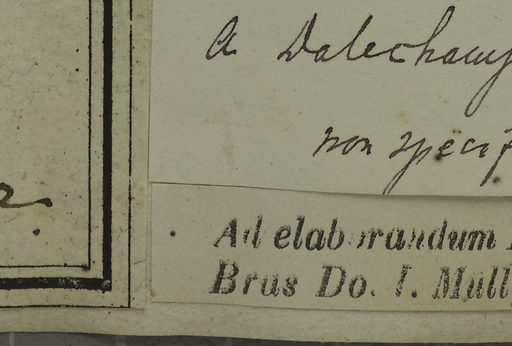 a Dalechamp
non specif
Ad elaborandum
Bras Do. I. Mull